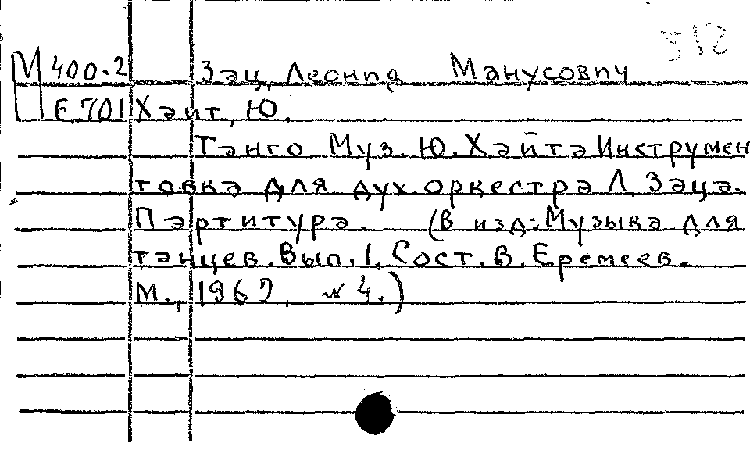 312
М 400.2 Зац, Леонид Манусович
Е 701 Хайт, Ю.
Танго Муз. Ю. Хайта Инструмен
товка для дух. оркестра Л. Заца.
Партитура. (В изд.: Музыка для
танцев. Вып. 1. Сост. В. Еремеев.
М., 1967, № 4.)